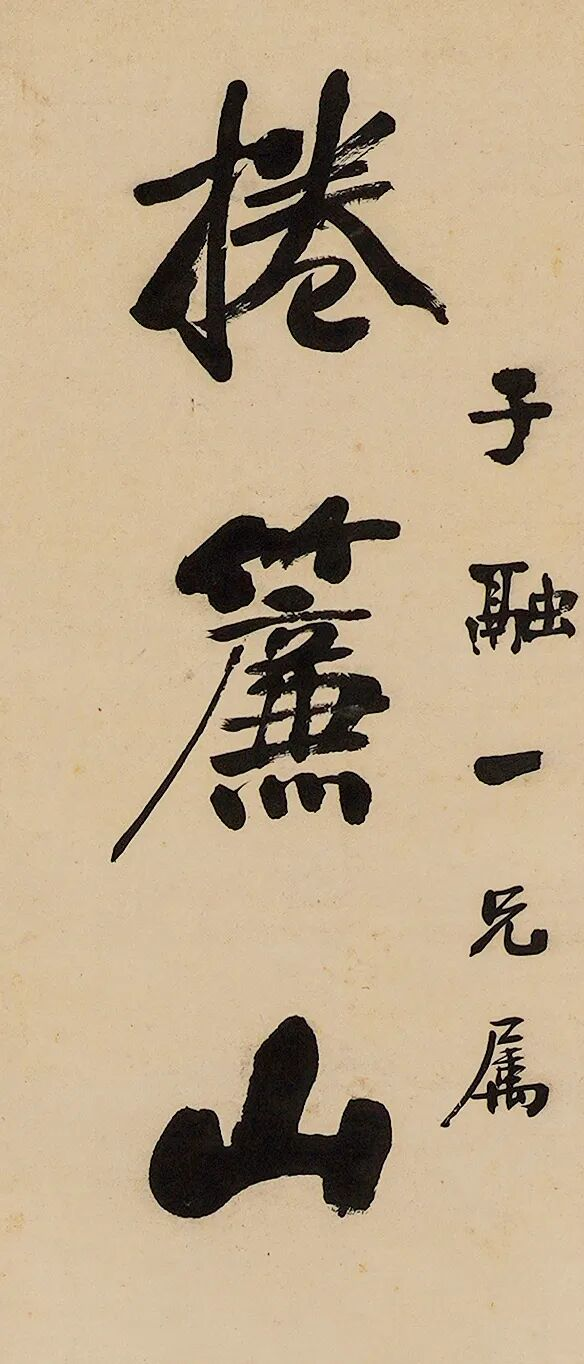 子融一兄属
捲簾山